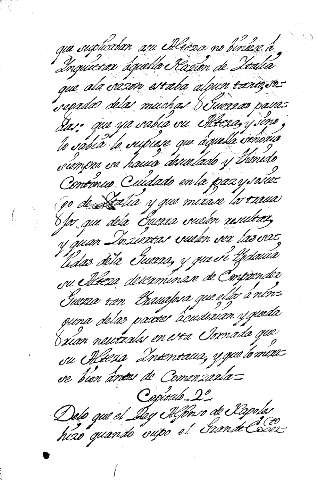 que suplicaban a su Alteza no biniese á
Inquietar áquella Nazion de Italia
que ala sazon estaba algun tanto so-
segada delas muchas Guerras pasa-
das: que ya sabia su Alteza, y sino
lo sabia lo supiese que áquella señoria
siempre se havia desvelado y thenido
Continuo Cuidado en la paz y sosie-
go de Italia y que mirase los traba
jos que dela Guerra suelen resultar,
y quan Inziertas suelen ser las sa-
lidas dela Guerra, y que si thodavia
su Alteza determinaba de Emprender
Guerra tan travajosa que ellos á nin-
guna de las partes acudirian y queda
rian neutrales en esta Jornada que
su Alteza Intentava, y que lo mira-
se bien ántes de Comenzarla-
Capitulo 2º
Delo que el Rey Alfonso de Napoles
hizo quando supo el